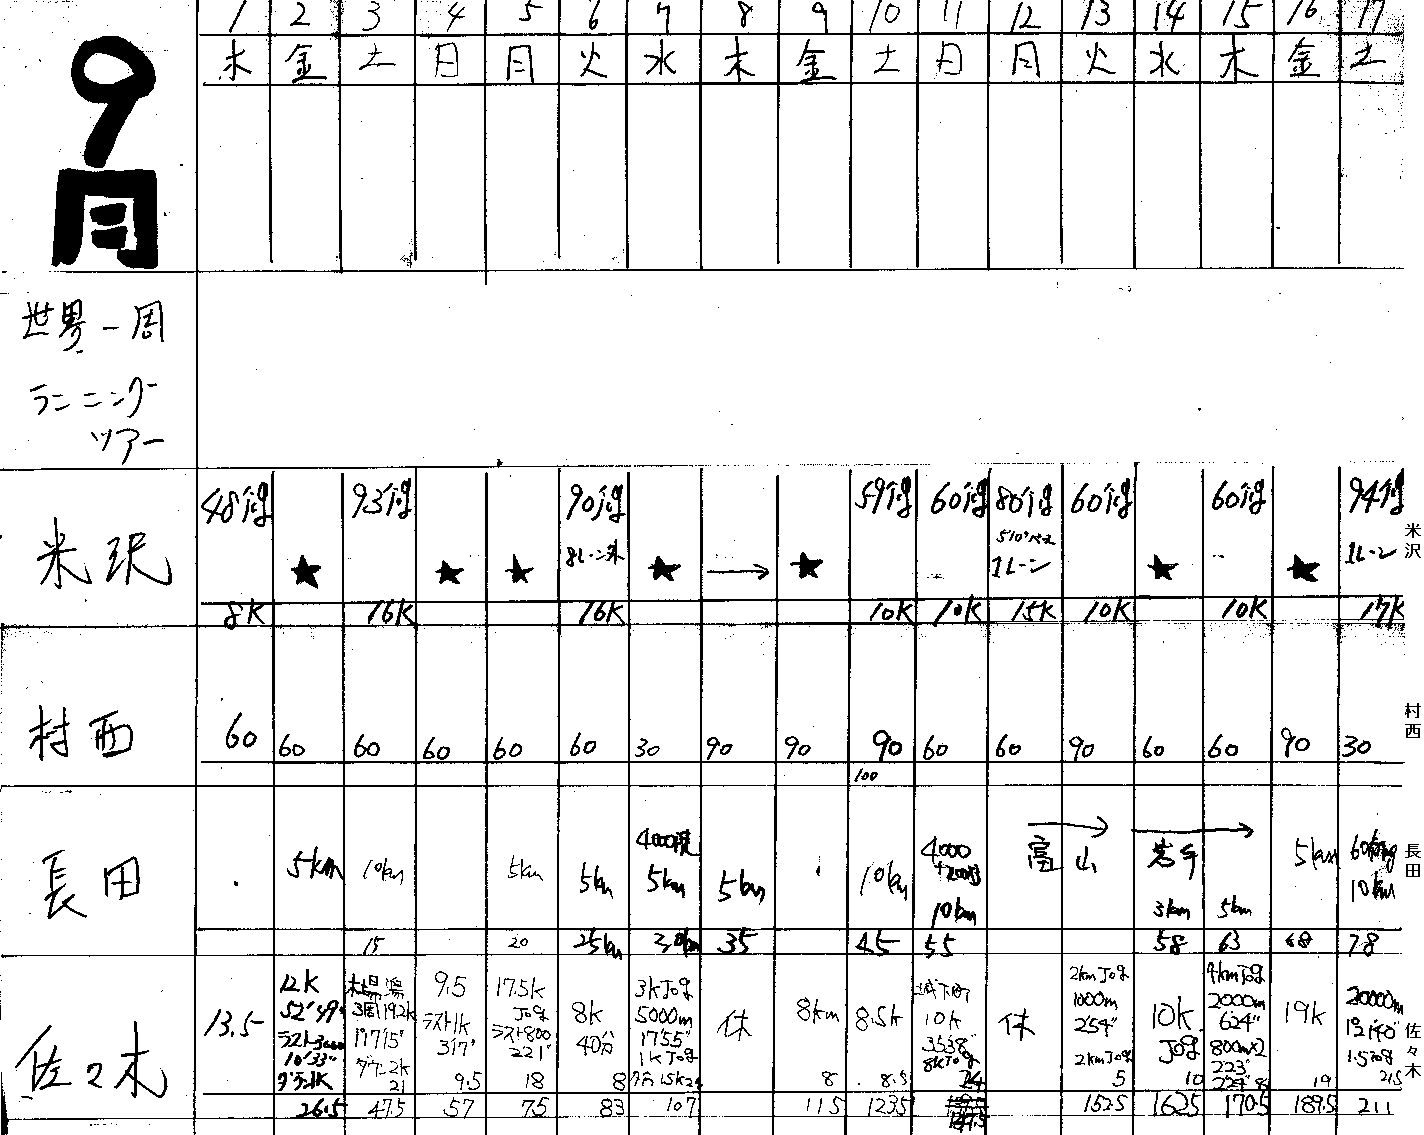 9月
1 2 3 4 5 6 7 8 9 10 11 12 13 14 15 16 17
木 金 土 日 月 火 水 木 金 土 日 月 火 水 木 金 土
世界一周
ランニング
ツアー
米沢
48'jog 93'jog 90'jog 59'jog 60'jog 80'jog 60'jog 60'jog 94'jog
8レーン外 5'10"ペース 1レーン 1レーン
★ ★ ★ ★ → ★ ★ ★
8K 16K 16K 10K 10K 15K 10K 10K 17K
米沢
村西
60 60 60 60 60 60 30 90 90 90 60 60 90 60 60 90 30
100
村西
長田
5km 10km 5km 5km 5km 5km 10km 10km 富山 岩手 3km 5km 5km 10km
4000
15 20 25km 35 45 55 58 63 68 78
長田
佐々木
13.5
12K
52'49"
ラスト3000
10'33"
ダウン1K
木場潟
3周19.2K
1°17'15"
ダウン2K
21
9.5
ラスト1K
3'17"
9.5
17.5K
Jog
ラスト800
2'21"
18
8K
40分
8
3KJog
5000m
17'55"
1KJog
休
8km
8
8.5K
8.5
城下町
10K
35'38"
8KJog
24
休
2kmJog
1000m
2'54"
2kmJog
5
10K
Jog
10
4kmJog
2000m
6'24"
800m×2
2'23"
2'24"
8
19K
19
20000m
1.5Jog
21.5
26.5 47.5 57 75 83 107 115 123.5 147.5 152.5 162.5 170.5 189.5 211
佐々木